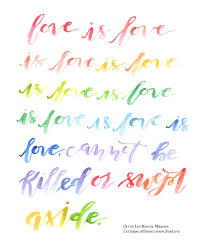 love is love
is love is love
is love is love
is love is love is
love, cannot be
killed or swept
aside.
Quote Lin-Manuel Miranda